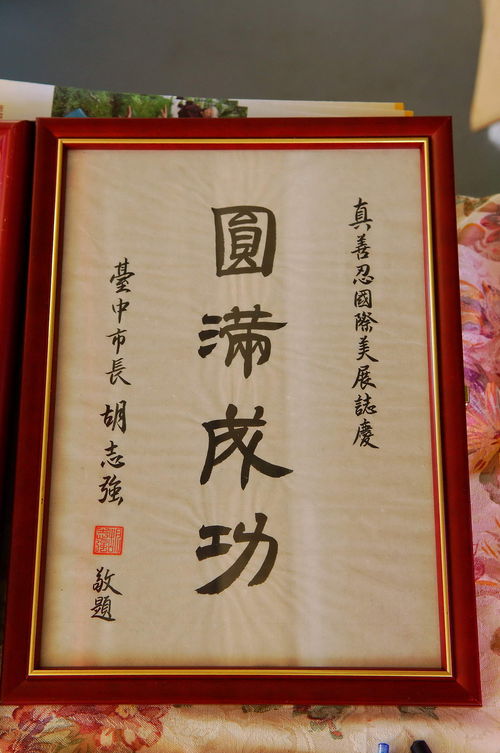 真善忍國際美展誌慶
圓滿成功
臺中市長 胡志強 敬題